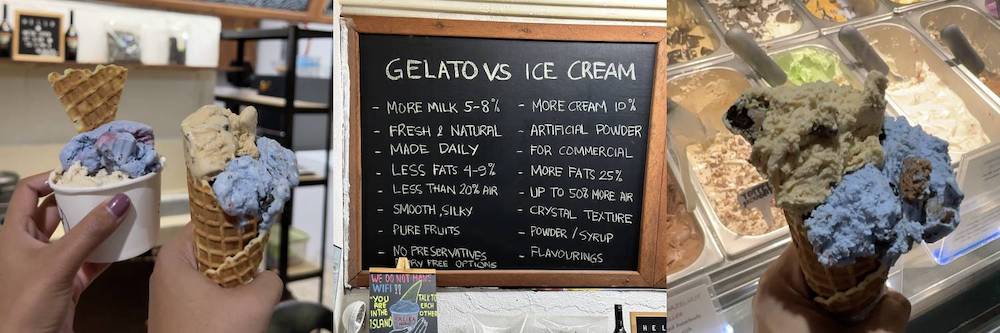 HELLO
GELATO VS ICE CREAM
- MORE MILK 5-8%
- FRESH & NATURAL
- MADE DAILY
- LESS FATS 4-9%
- LESS THAN 20% AIR
- SMOOTH, SILKY
- PURE FRUITS
- NO PRESERVATIVES
FREE OPTIONS
- MORE CREAM 10%
- ARTIFICIAL POWDER
- FOR COMMERCIAL
- MORE FATS 25%
- UP TO 50% MORE AIR
- CRYSTAL TEXTURE
- POWDER / SYRUP
- FLAVOURINGS
WE DO NOT HAVE
WIFI !!
YOU
ARE
IN THE
ISLAND
TALK TO
EACH
OTHER
HEL